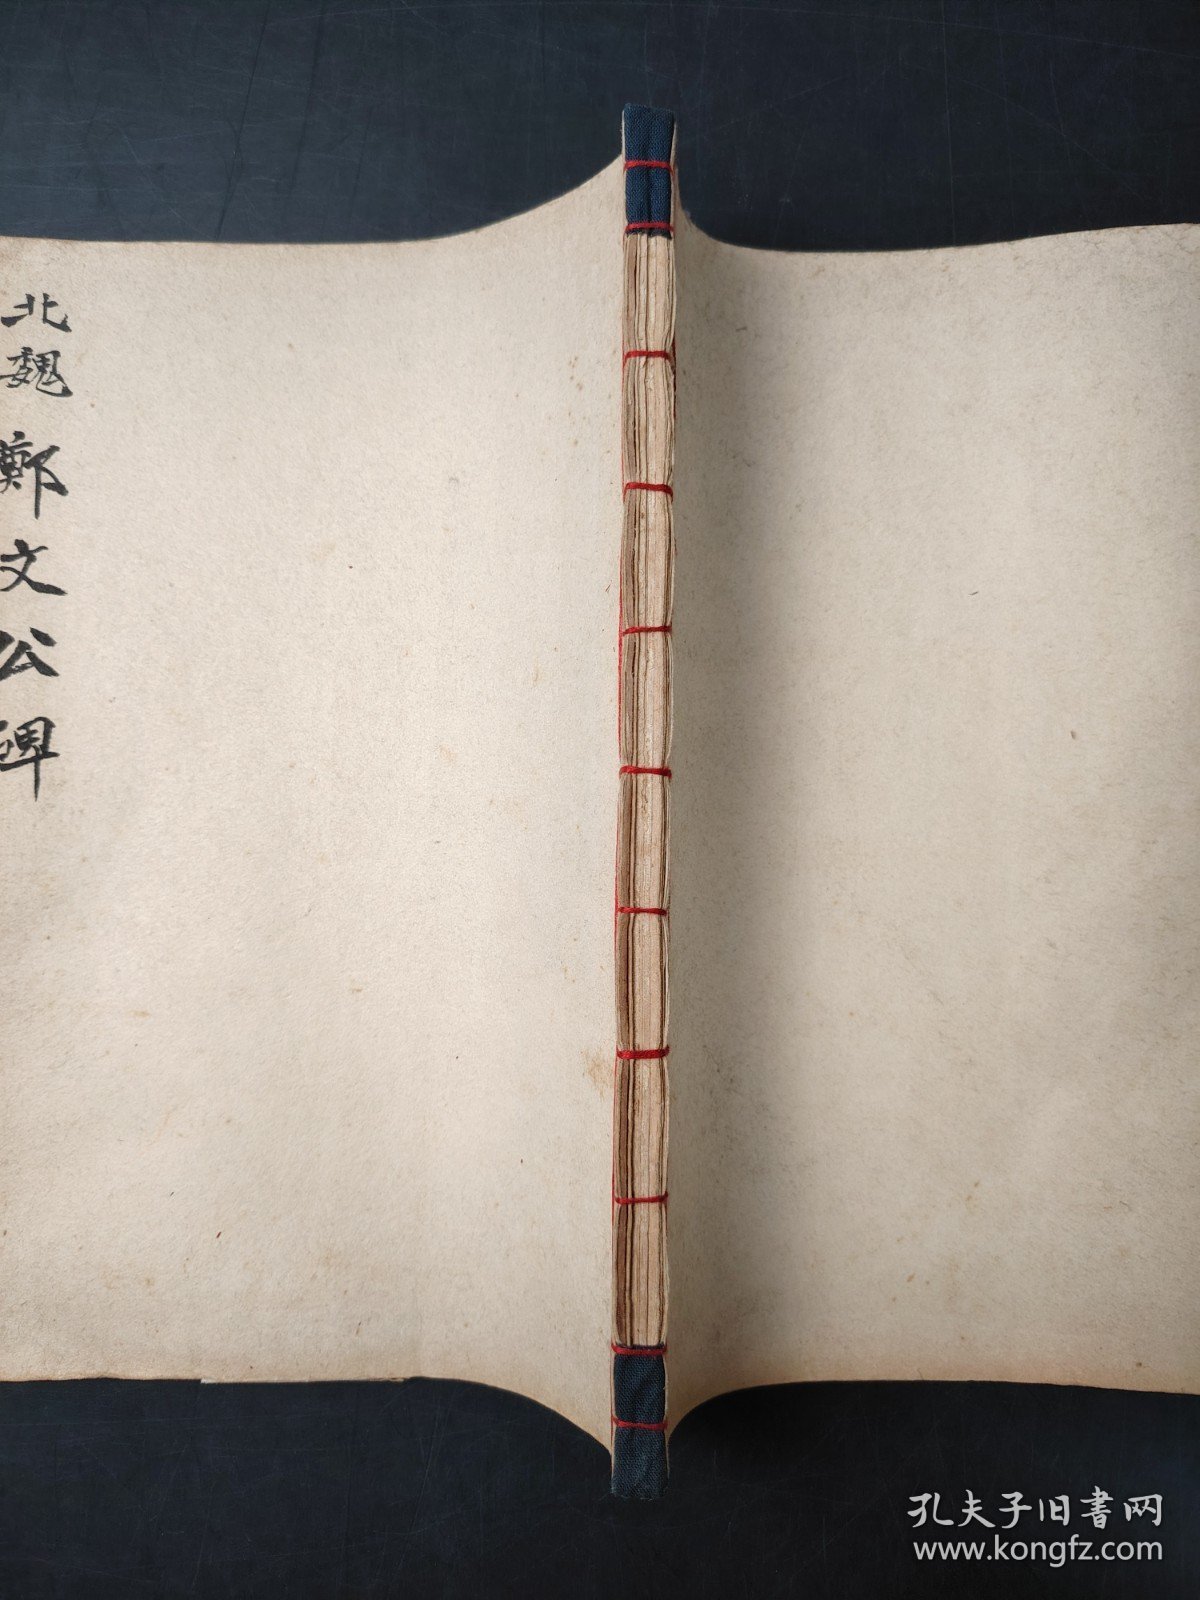 北魏 鄭文公碑
孔夫子旧書网
www.kongfz.com